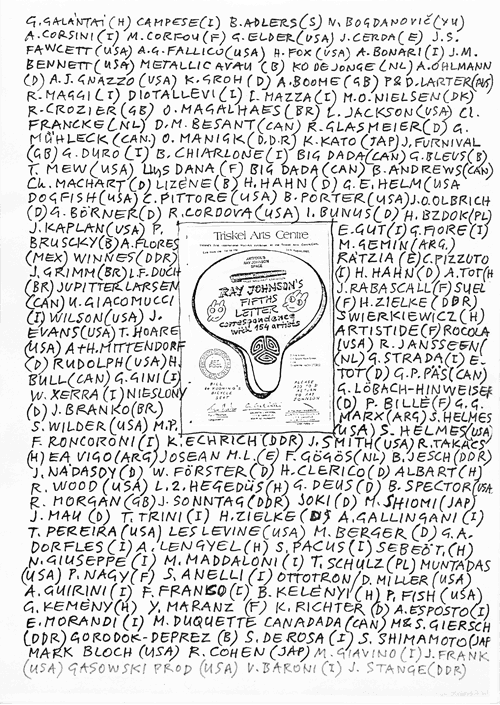 G. GALÁNTAI (H) CAMPESE (I) B. ADLERS (S) N. BOGDANOVIČ (YU)
A. CORSINI (I) M. CORFOU (F) G. ELDER (USA) J. CERDA (E) J.S.
FAWCETT (USA) A.G. FALLICO (USA) H. FOX (USA) A. BONARI (I) J.M.
BENNETT (USA) METALLIC AVAU (B) KO DE JONGE (NL) A. OHLMANN
(D) A.J. GNAZZO (USA) K. GROH (D) A. BOOME (GB) P&D. LARTER (AUS)
R. MAGGI (I) DIOTALLEVI (I) L. MAZZA (I) M.O. NIELSEN (DK)
R. CROZIER (GB) O. MAGALHAES (BR) L. JACKSON (USA) CL.
FRANCKE (NL) D.M. BESANT (CAN) R. GLASMEIER (D) G.
MÜHLECK (CAN.) O. MANIGK (D.D.R) K. KATO (JAP) J. FURNIVAL
(GB) G. DURO (I) B. CHIARLONE (I) BIG DADA (CAN) G. BLEUS (B)
T. MEW (USA) LUYS DANA (F) BIG DADA (CAN) B. ANDREWS (CAN)
CH. MACHART (D) LIZENE (B) H. HAHN (D) G.E. HELM (USA
DOGFISH (USA) C. PITTORE (USA) B. PORTER (USA) J.O. OLBRICH
(D) G. BÖRNER (D) R. CORDOVA (USA) I. BUNUS (D) H. BZDOK (PL)
J. KAPLAN (USA) P. E. GUT (I) G. FIORE (I)
BRUSCKY (B) A. FLORES M. GEMIN (ARG.)
(MEX) WINNES (DDR) RATZIA (E) C. PIZZUTO
J. GRIMM (BR) L.F. DUCH (I) H. HAHN (D) A. TÓT (H
(BR) JUPITTER LARSEN J. RABASCALL (F) SUEL
(CAN) U. GIACOMUCCI (F) H. ZIELKE (DDR)
(I) WILSON (USA) J. SWIERKIEWICZ (H)
EVANS (USA) T. HOARE ARTISTIDE (F) ROCOLA
(USA) A+H. MITTENDORF (USA) R. JANSSEEN (
(D) RUDOLPH (USA) H. NL) G. STRADA (I) E.
BULL (CAN) G. GINI (I) TOT (D) G.P. PAS (CAN)
W. XERRA (I) NIESLONY G. LÖBACH-HINWEISER
(D) J. BRANKO (BR) (D) P. BILLE (F) G.G.
S. WILDER (USA) M.P. MARX (ARG) S. HELMES
(USA) S. HELMES (USA)
Triskel Arts Centre
RAY JOHNSON'S
FIFTHS
LETTER
correspondance
with 154 artists
F. RONCORONI (I) K. ECHRICH (DDR) J. SMITH (USA) R. TAKÁCS
(H) EA VIGO (ARG) JOSEAN M.L. (E) F. GÖGÖS (NL) B. JESCH (DDR)
J. NÁDASDY (D) W. FÖRSTER (D) H. CLERICO (D) ALBART (H)
R. WOOD (USA) L.2. HEGEDÜS (H) G. DEUS (D) B. SPECTOR (USA
R. MORGAN (GB) J. SONNTAG (DDR) JOKI (D) M. SHIOMI (JAP)
J. MAU (D) T. TRINI (I) H. ZIELKE A. GALLINGANI (I)
T. PEREIRA (USA) LES LEVINE (USA) M. BERGER (D) G.A.
DORFLES (I) A. LENGYEL (H) S. PACUS (I) SEBEŐT. (H)
N. GIUSEPPE (I) M. MADDALONI (I) T. SCHULZ (PL) MUNTADAS
(USA) P. NAGY (F) S. ANELLI (I) OTTOTRON/D. MILLER (USA)
A. GUIRINI (I) F. FRANCO (I) B. KELÉNYI (H) P. FISH (USA)
G. KEMÉNY (H) Y. MARANZ (F) K. RICHTER (D) A. ESPOSTO (I)
E. MORANDI (I) M. DUQUETTE CANADADA (CAN) M&S. GIERSCH
(DDR) GORODOK-DEPREZ (B) S. DE ROSA (I) S. SHIMAMOTO (JAP
MARK BLOCH (USA) R. COHEN (JAP) M. GIAVINO (I) J. FRANK
(USA) GASOWSKI PROD (USA) V. BARONI (I) J. STANGE (DDR)